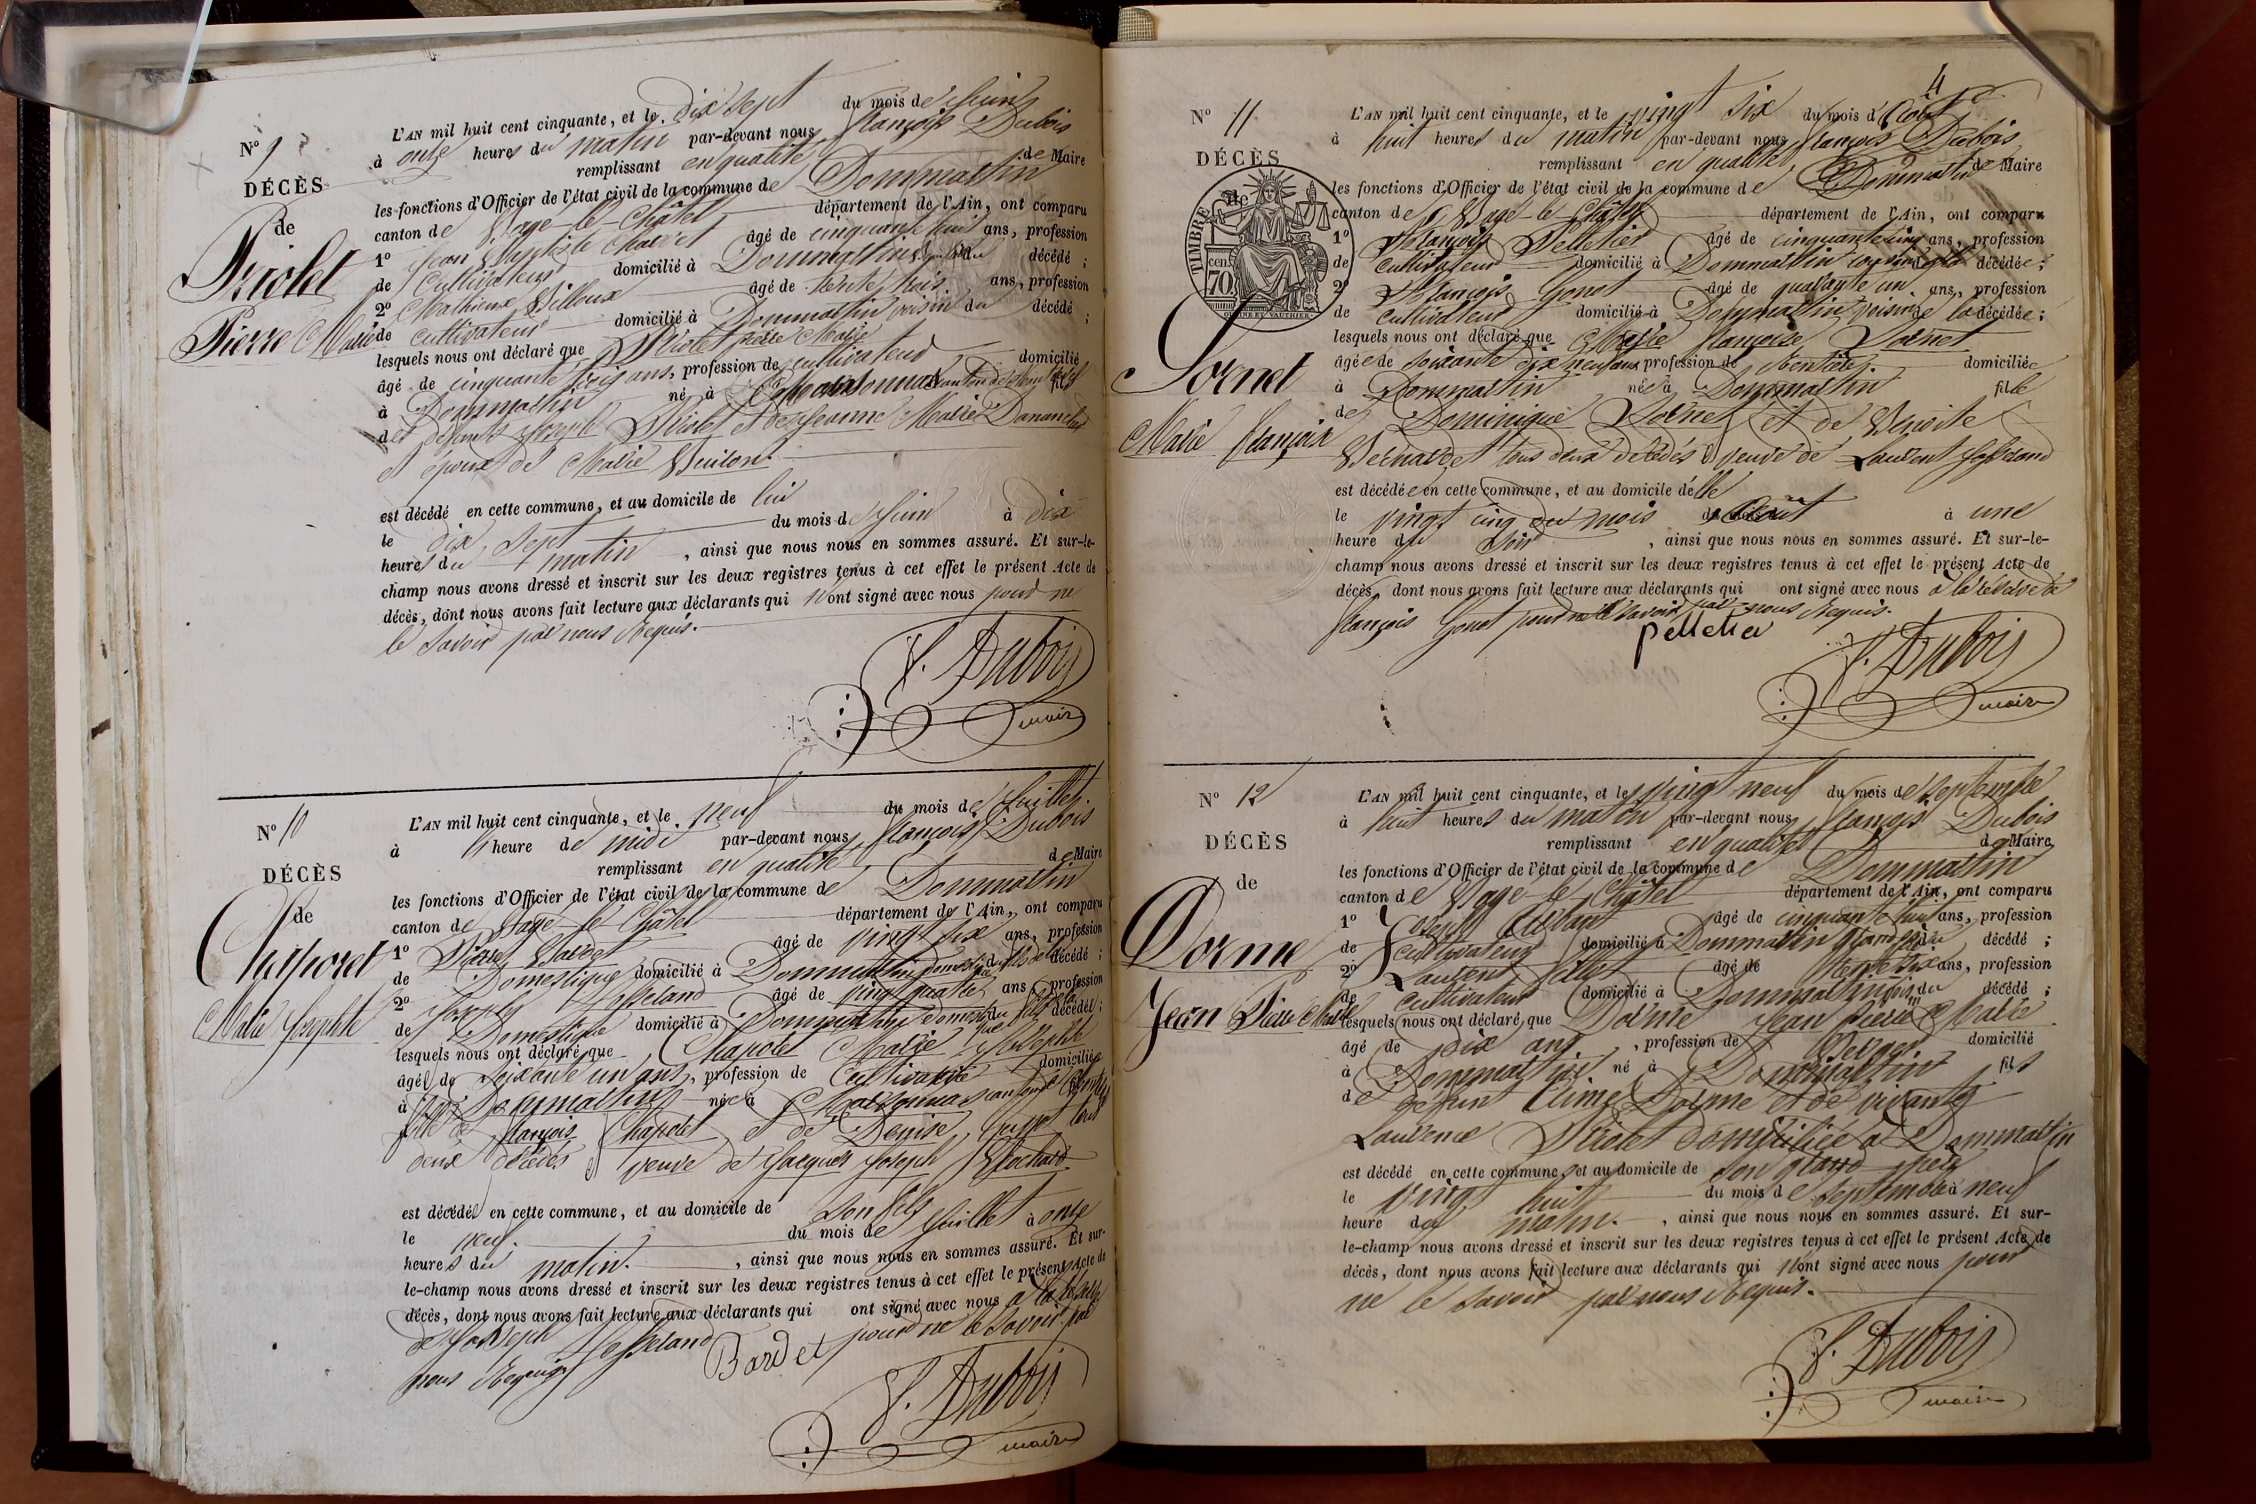 N° 9
DÉCÈS
de
Priolet
Pierre Marie
L'AN mil huit cent cinquante, et le dix sept du mois de Juin
à onze heures du matin par-devant nous François Dubois
remplissant en qualité de Maire
les fonctions d'Officier de l'état civil de la commune de Dommartin
canton de Bagé-le-Châtel département de l'Ain, ont comparu
1° Jean Baptiste âgé de cinquante huit ans, profession
de Cultivateur domicilié à Dommartin du décédé ;
2° Mathieu Villoux âgé de trente trois ans, profession
de cultivateur domicilié à Dommartin voisin du décédé ;
lesquels nous ont déclaré que Priolet Pierre Marie
âgé de cinquante trois ans, profession de cultivateur domicilié
à Dommartin né à fils
des défunts Joseph Priolet et de Jeanne Marie Dananches
et époux de Marie Veuilon.
est décédé en cette commune, et au domicile de lui
le dix sept du mois de Juin à dix
heures du matin, ainsi que nous nous en sommes assuré. Et sur-le-
champ nous avons dressé et inscrit sur les deux registres tenus à cet effet le présent Acte de
décès, dont nous avons fait lecture aux déclarants qui n'ont signé avec nous pour ne
le savoir par nous Requis.
F. Dubois
maire
N° 10
DÉCÈS
de
Chaporet
Marie Josephte
L'AN mil huit cent cinquante, et le neuf du mois de Juillet
à heure de midi par-devant nous François Dubois
remplissant en qualité de Maire
les fonctions d'Officier de l'état civil de la commune de Dommartin
canton de Bagé-le-Châtel département de l'Ain, ont comparu
1° Pierre Bardet âgé de vingt six ans, profession
de Domestique domicilié à Dommartin décédé ;
2° Joseph Josserand âgé de vingt quatre ans, profession
de Domestique domicilié à Dommartin décédé ;
lesquels nous ont déclaré que Chaporet Marie Josephte
âgée de soixante un ans, profession de Cultivatrice domiciliée
à Dommartin née à
fille de François Chaporet et de Denise tous
deux décédés veuve de Jacques Joseph Brochard
est décédée en cette commune, et au domicile de son fils
le neuf du mois de Juillet à onze
heures du matin, ainsi que nous nous en sommes assuré. Et sur-
le-champ nous avons dressé et inscrit sur les deux registres tenus à cet effet le présent Acte de
décès, dont nous avons fait lecture aux déclarants qui ont signé avec nous à la réserve
de Joseph Josserand pour ne le savoir par
nous Requis
Bardet
F. Dubois
maire
4
N° 11
DÉCÈS
de
TIMBRE
cen.
70
Sornet
Marie Françoise
L'AN mil huit cent cinquante, et le vingt six du mois d'Août
à huit heures du matin par-devant nous François Dubois
remplissant en qualité de Maire
les fonctions d'Officier de l'état civil de la commune de Dommartin
canton de Bagé-le-Châtel département de l'Ain, ont comparu
1° François Pelletier âgé de cinquante cinq ans, profession
de cultivateur domicilié à Dommartin décédée ;
2° François Gonet âgé de quarante un ans, profession
de cultivateur domicilié à Dommartin voisin de la décédée ;
lesquels nous ont déclaré que Marie Françoise Sornet
âgée de soixante dix neuf ans profession de Rentière domiciliée
à Dommartin née à Dommartin fille
de Dominique Sornet et de Benoite
Bernardet tous deux décédés veuve de Laurent Josserand
est décédée en cette commune, et au domicile d'elle
le vingt cinq du mois d'Août à une
heure du soir, ainsi que nous nous en sommes assuré. Et sur-le-
champ nous avons dressé et inscrit sur les deux registres tenus à cet effet le présent Acte de
décès, dont nous avons fait lecture aux déclarants qui ont signé avec nous à la réserve de
François Gonet pour ne le savoir par nous Requis.
pelletier
F. Dubois
maire
N° 12
DÉCÈS
de
Dorme
Jean Pierre Marie
L'AN mil huit cent cinquante, et le vingt neuf du mois de Septembre
à huit heures du matin par-devant nous François Dubois
remplissant en qualité de Maire
les fonctions d'Officier de l'état civil de la commune de Dommartin
canton de Bagé-le-Châtel département de l'Ain, ont comparu
1° Joseph âgé de cinquante huit ans, profession
de cultivateur domicilié à Dommartin décédé ;
2° Laurent âgé de trente six ans, profession
de cultivateur domicilié à Dommartin voisin du décédé ;
lesquels nous ont déclaré que Dorme Jean Pierre Marie
âgé de dix ans, profession de Berger domicilié
à Dommartin né à Dommartin fils
de défunt Aimé Dorme et de vivante
Laurence Priolet domiciliée à Dommartin
est décédé en cette commune, et au domicile de son grand père
le vingt huit du mois de Septembre à neuf
heure du matin, ainsi que nous nous en sommes assuré. Et sur-
le-champ nous avons dressé et inscrit sur les deux registres tenus à cet effet le présent Acte de
décès, dont nous avons fait lecture aux déclarants qui n'ont signé avec nous pour
ne le savoir par nous Requis.
F. Dubois
maire